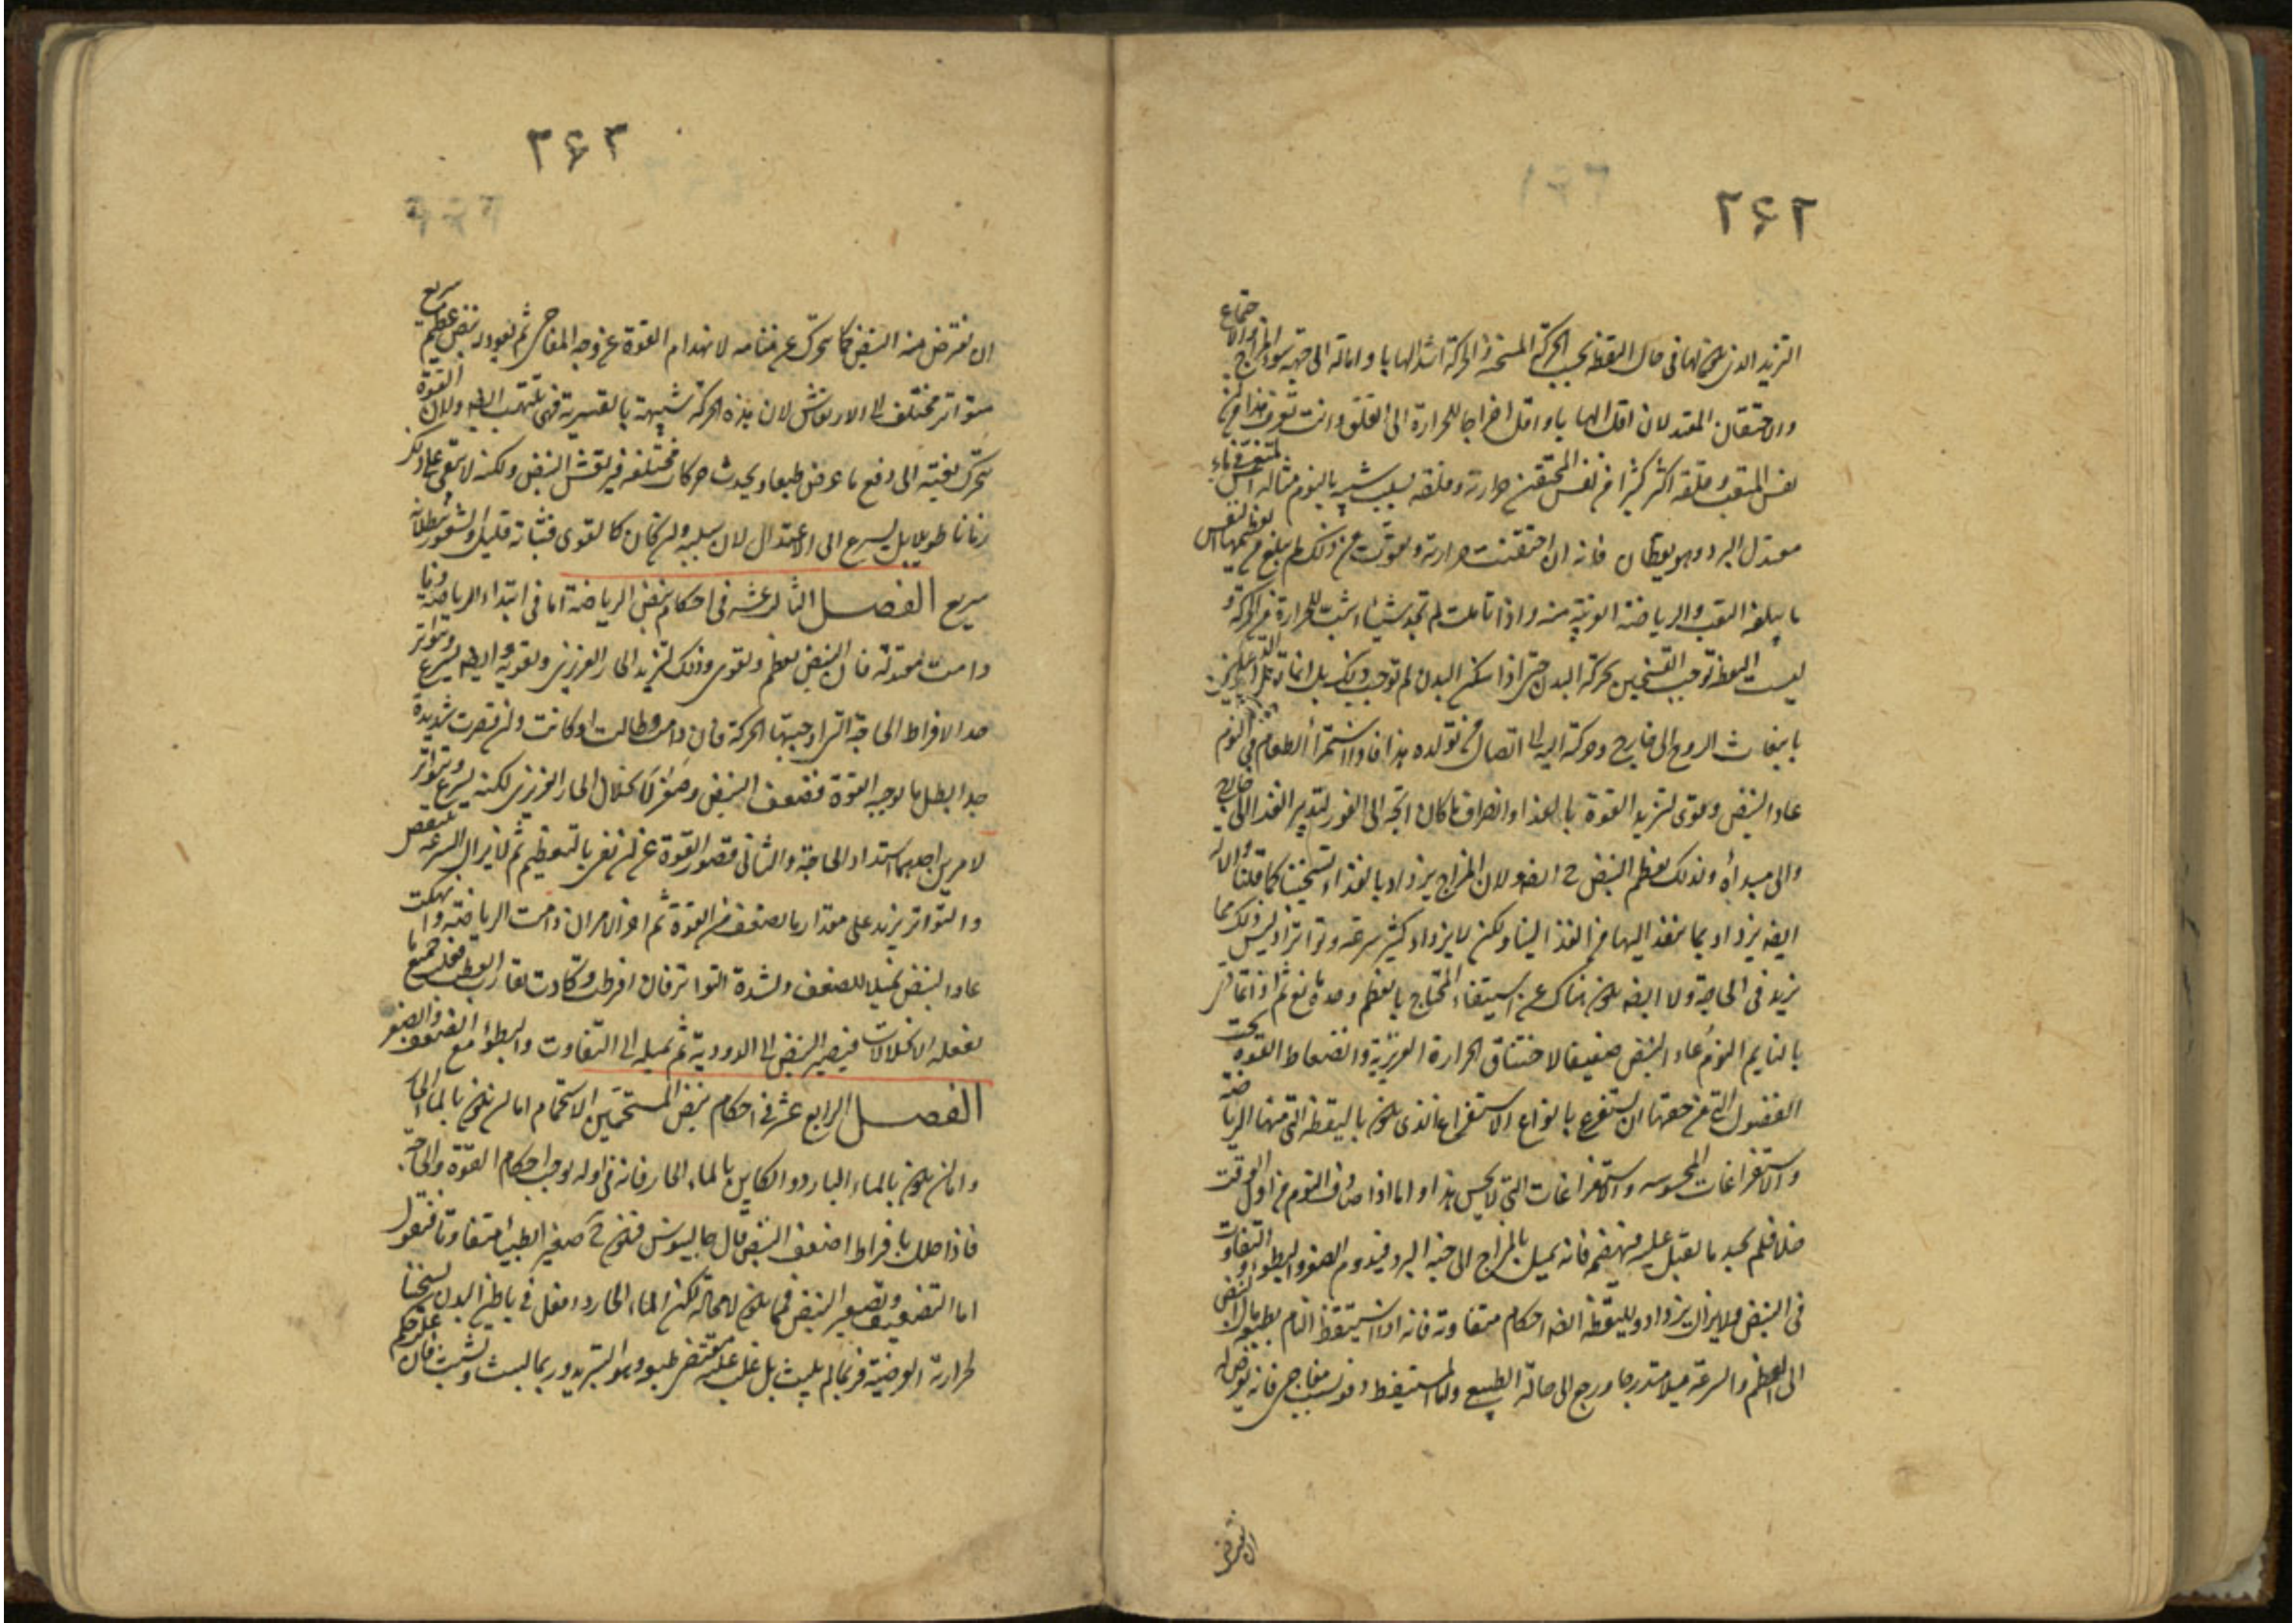 ۲۶۲
التزيد الذي يكون لها في حال اليقظة بحسب الحركة المسخنة فالحركة اشد الهابا وامالة الى جهة سوء المزاج والاجتماع
والاحتقان المعتدلان اقل الهابا واقل اخراجا للحرارة الى القلق وانت تعرف هذا من ان
نفس المتعب وقلقه اكثر كثيرا من نفس المحتقن حرارته وقلقه بسبب شبيه بالنوم مثاله المنغمس في ماء
معتدل البرد وهو يقظان فانه اذا احتقنت حرارته وتقوت من ذلك لم يبلغ من تعظيمها النفس
ما يبلغه التعب والرياضة القريبة منه واذا تاملت لم تجد شيئا اشبت للحرارة من الحركة و
ليست اليقظة توجب التسخين بحركة البدن حتى اذا سكن البدن لم توجب ذلك بل انما
بانبعاث الروح الى خارج وحركته اليه على اتصال من تولده هذا فاذا استمرأ الطعام في النوم
عاد النبض وقوى لتزيد القوة بالغذا وانصراف ما كان اتجه الى الغور لتدبير الغذا الى خارج
والى مبدأه ولذلك يعظم النبض ح ايضه ولان المزاج يزداد بالغذاء تسخينا كما قلنا والآلة
ايضه يزداد بما ينفذ اليها من الغذا لينا ولكن لا يزداد كثير سرعة وتواتر اذ ليس ذلك مما
يزيد في الحاجة ولا ايضه يكون هناك عن استيفاء المحتاج بالعظم وحده مانع ثم اذا تمادى
بالنايم النوم عاد النبض ضعيفا لاختناق الحرارة الغريزية وانضغاط القوة تحت
الفضول التي من حقها ان تستفرغ بانواع الاستفراغ الذي يكون باليقظة التي منها الرياضة
والاستفراغات المحسوسه والاستفراغات التي لا يحس هذا واما اذا صادف النوم من اول الوقت
خلا فلم يجد ما يقبل عليه فيهضمه فانه يميل بالمزاج الى جنبه البرد فيدوم الصغر والبطوء والتفاوت
في النبض ولا يزال يزداد ولليقظة ايضه احكام متفاوته فانه اذا استيقظ النايم بطبعه مال النبض
الى العظم والسرعة ميلا متدرجا ورجع الى حاله الطبيعي ولما المستيقظ دفعة بسبب مفاجي فانه يعرض له
ان يفترض
۲۶۳
ان يفترض منه النبض كما تحرك عن منامه لانهدام القوة عن وجه المفاجي ثم يعود له نبض عظيم سريع
متواتر مختلف الى الارتعاش لان هذه الحركة شبيهة بالقسرية فهي تلهب ايضه ولان القوة
تتحرك بغتة الى دفع ما عرض طبعا ويحدث حركات مختلفة فيرتعش النبض ولكنه لا يبقى على ذلك
زمانا طويلا بل يسرع الى الاعتدال لان سببه وان كان كالقوى فثباته قليل والشعور ببطلانه
سريع الفصل الثالث عشر في احكام نبض الرياضة اما في ابتداء الرياضة وما
دامت معتدلة فان النبض يعظم ويقوى وذلك لتزيد الحار الغريزى وتقويه وايضه يسرع ويتواتر
حد الافراط الحاجة التي اوجبتها الحركة فان دامت وطالت او كانت وان قصرت شديدة
جدا بطل ما توجبه القوة فضعف النبض وصغر لانحلال الحار الغريزى لكنه يسرع ويتواتر
لامرين احدهما استداد الحاجة والثانى قصور القوة عن ان تفى بالتعظيم ثم لا يزال السرعة تنتقص
والتواتر يزيد على مقدار ما يضعف من القوة ثم اخر الامر ان دامت الرياضة وانهكت
عاد النبض نمليا للضعف ولشدة التواتر فان افرطت وكادت تقارب العطب فعلت جميع ما
تفعله الانحلالات فيصير النبض الى الدودية ثم تميله الى التفاوت والبطؤ مع الضعف والصغر
الفصل الرابع عشر في احكام نبض المستحمين الاستحمام اما ان يكون بالماء الحار
واما ان يكون بالماء البارد والكاين بالماء الحار فانه في اوله يوجب احكام القوة والحاجة
فاذا حلل بافراط اضعف النبض قال جالينوس فيكون ح صغيرا بطيئا متفاوتا فنقول
اما التضعيف وتصغير النبض فمما يكون لا محالة لكن الماء الحار اذا فعل في باطن البدن تسخينا
لحرارته العرضية فربما لم يلبث بل غلب عليه مقتضى طبعه وهو التبريد وربما لبث وتشبث فان غلب حكم